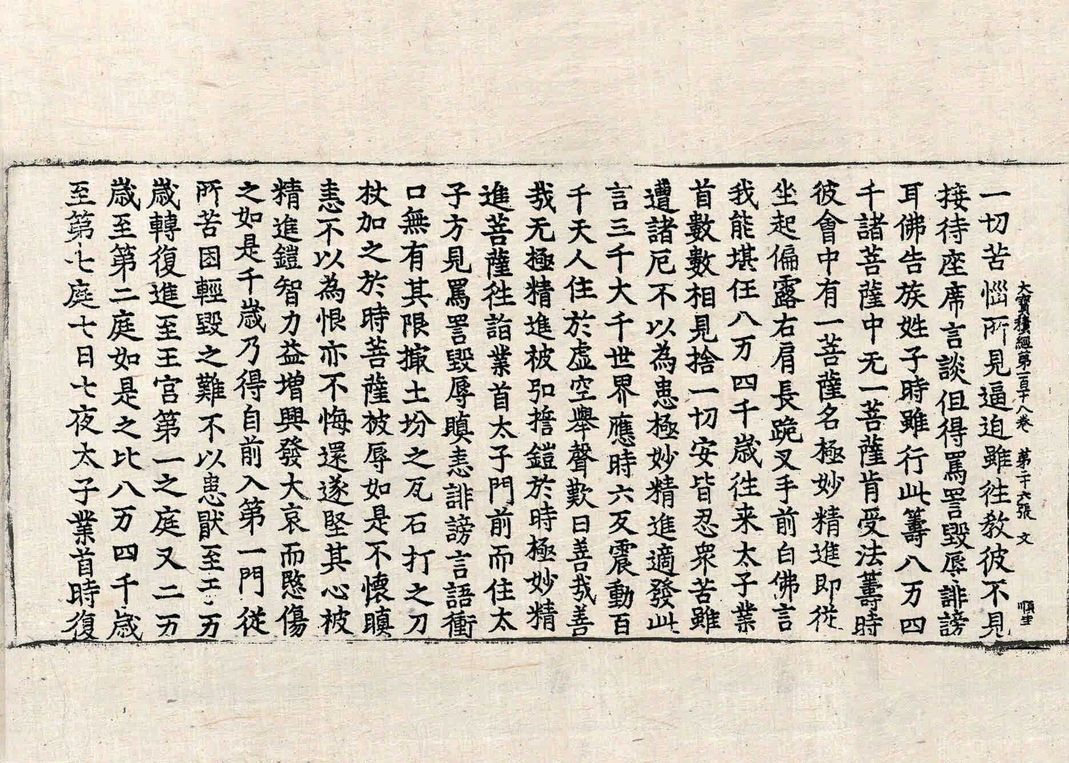 大寶積經第一百十八卷 第二十六張 文 順生
一切苦惱所見逼迫雖往教彼不見
接待座席言談但得罵詈毀辱誹謗
耳佛告族姓子時雖行此籌八万四
千諸菩薩中无一菩薩肯受法籌時
彼會中有一菩薩名極妙精進即從
坐起偏露右肩長跪叉手前白佛言
我能堪任八万四千歲往来太子業
首數數相見捨一切安皆忍衆苦雖
遭諸厄不以為患極妙精進適發此
言三千大千世界應時六反震動百
千天人住於虛空舉聲歎曰善哉善
哉无極精進被弘誓鎧於時極妙精
進菩薩往詣業首太子門前而住太
子方見罵詈毀辱瞋恚誹謗言語衝
口無有其限撮土坌之瓦石打之刀
杖加之於時菩薩被辱如是不懷瞋
恚不以為恨亦不悔還遂堅其心被
精進鎧智力益增興發大哀而愍傷
之如是千歲乃得自前入第一門從
所苦因輕毀之難不以患猒至二万
歲轉復進至王宮第一之庭又二万
歲至第二庭如是之比八万四千歲
至第七庭七日七夜太子業首時復